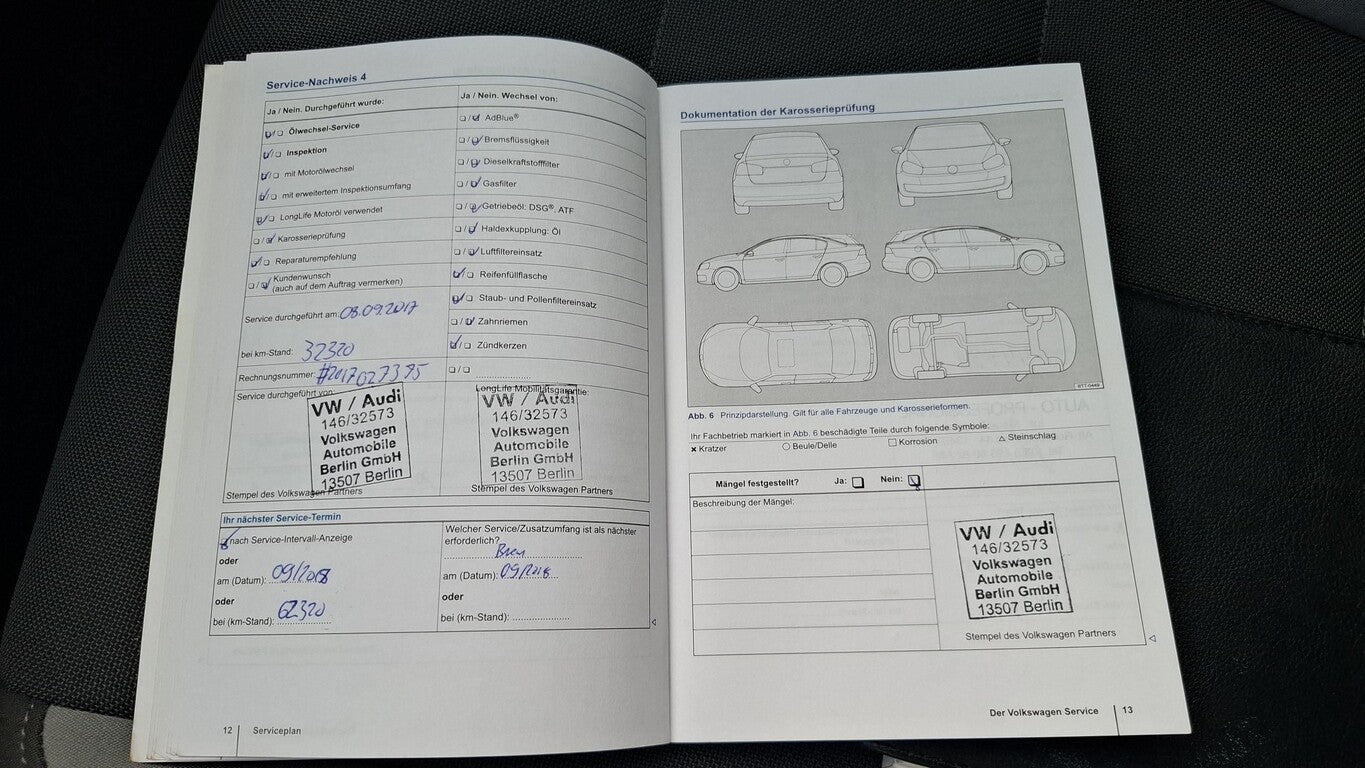 Service-Nachweis 4
Ja / Nein. Durchgeführt wurde:
Ölwechsel-Service
Inspektion
mit Motorölwechsel
mit erweitertem Inspektionsumfang
LongLife Motoröl verwendet
Karosserieprüfung
Reparaturempfehlung
Kundenwunsch
(auch auf dem Auftrag vermerken)
Service durchgeführt am: 08.09.2017
bei km-Stand: 32320
Rechnungsnummer: #2017027395
Service durchgeführt von:
VW / Audi
146/32573
Volkswagen
Automobile
Berlin GmbH
13507 Berlin
Stempel des Volkswagen Partners
Ja / Nein. Wechsel von:
AdBlue®
Bremsflüssigkeit
Dieselkraftstofffilter
Gasfilter
Getriebeöl: DSG®, ATF
Haldexkupplung: Öl
Luftfiltereinsatz
Reifenfüllflasche
Staub- und Pollenfiltereinsatz
Zahnriemen
Zündkerzen
LongLife Mobilitätsgarantie:
VW / Audi
146/32573
Volkswagen
Automobile
Berlin GmbH
13507 Berlin
Stempel des Volkswagen Partners
Ihr nächster Service-Termin
nach Service-Intervall-Anzeige
oder
am (Datum): 09/2018
oder
bei (km-Stand): 62320
Welcher Service/Zusatzumfang ist als nächster
erforderlich?
am (Datum): 09/2018
oder
bei (km-Stand):
12 Serviceplan
Dokumentation der Karosserieprüfung
BTT-0449
Abb. 6 Prinzipdarstellung. Gilt für alle Fahrzeuge und Karosserieformen.
Ihr Fachbetrieb markiert in Abb. 6 beschädigte Teile durch folgende Symbole:
Kratzer Beule/Delle Korrosion Steinschlag
Mängel festgestellt? Ja: Nein:
Beschreibung der Mängel:
VW / Audi
146/32573
Volkswagen
Automobile
Berlin GmbH
13507 Berlin
Stempel des Volkswagen Partners
Der Volkswagen Service 13